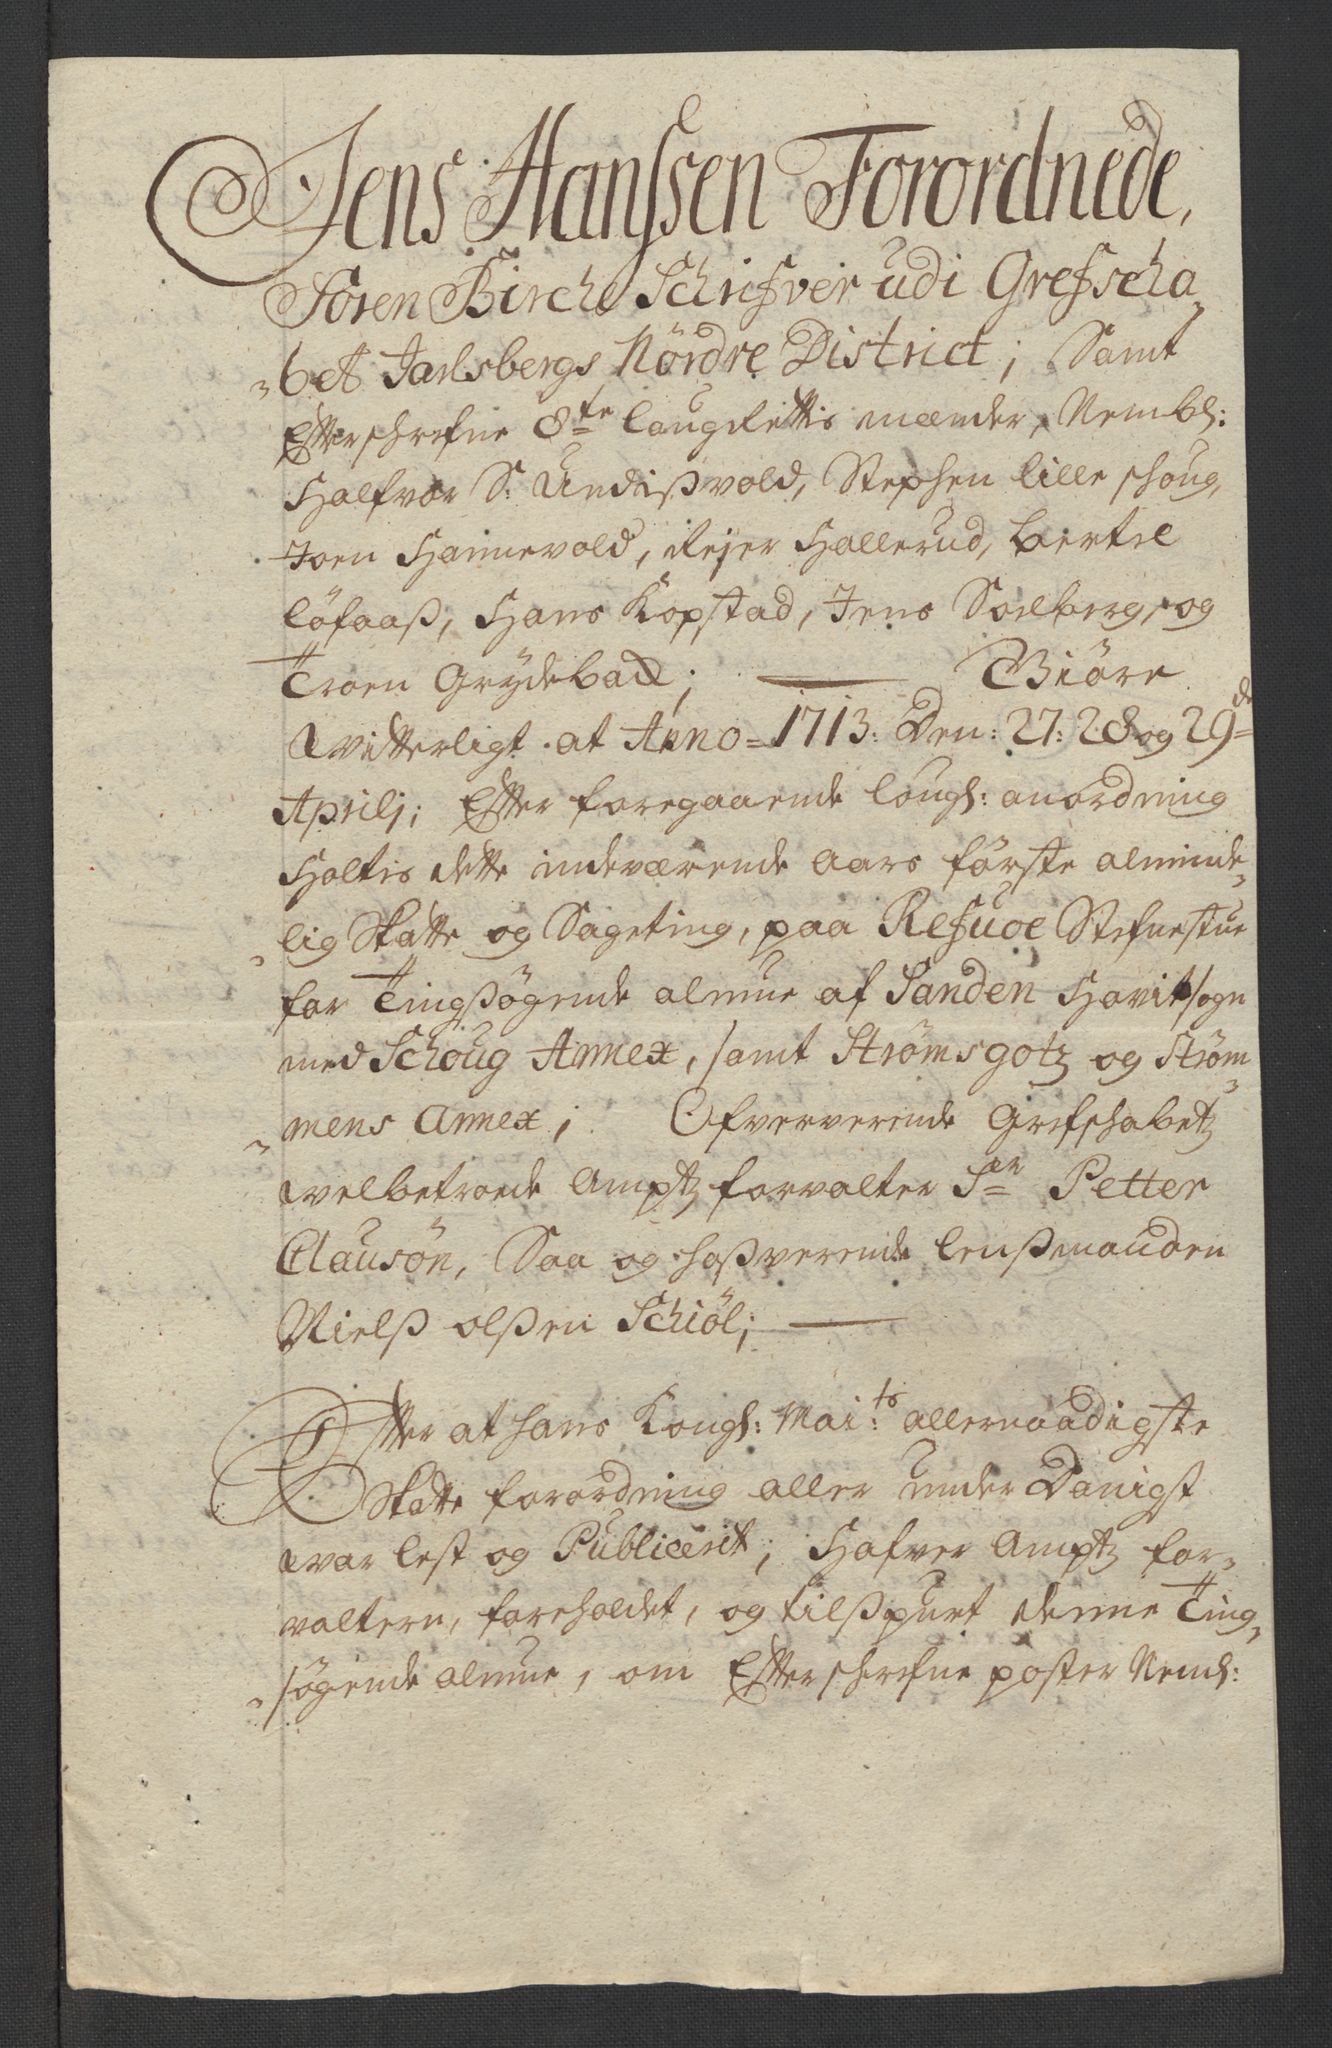 Jens Hanssen Forordnede,
Soren Birche Schrifver udi Grefscha-
bet Jarlsbergs Nördre District; Samt
Efterschrefne 8te laugrettis mænder, Nembl:
Halfvor S: Undisvold, Stephen lille schoug,
Joen Hannevold, Rejer Hallerud, bertel
löfaaß, Hans Kopstad, Jens Solberg, og
Troen Grydebach; Giöre
witterligt at Anno 1713: Den: 27: 28 og 29de
Aprilj; Efter foregaaende lougl: anordning
Holtis dette indeværende aars förste alminde-
lig Skatte og Sageting, paa Refuoe Stefnestue
for Tingßögende almue af Sanden Hovitsogn
med Schoug Annex, samt Strømsgotz og Ström-
mens Annex; Ofververende Grefschabetz
welbetroede Amptz forvalter Sr Petter
Clausön, Saa og hoßverende lenßmanden
Nielß olßen Schiöl;
Efter at hans Kongl: Maits allernaadigste
Skatte forordning aller under Danigst
war lest og Publicerit; Hafver Amptz for-
valteren, foreholdet, og tilßpurt denne Ting-
sögende almue, om Efterschrefne poster Neml: